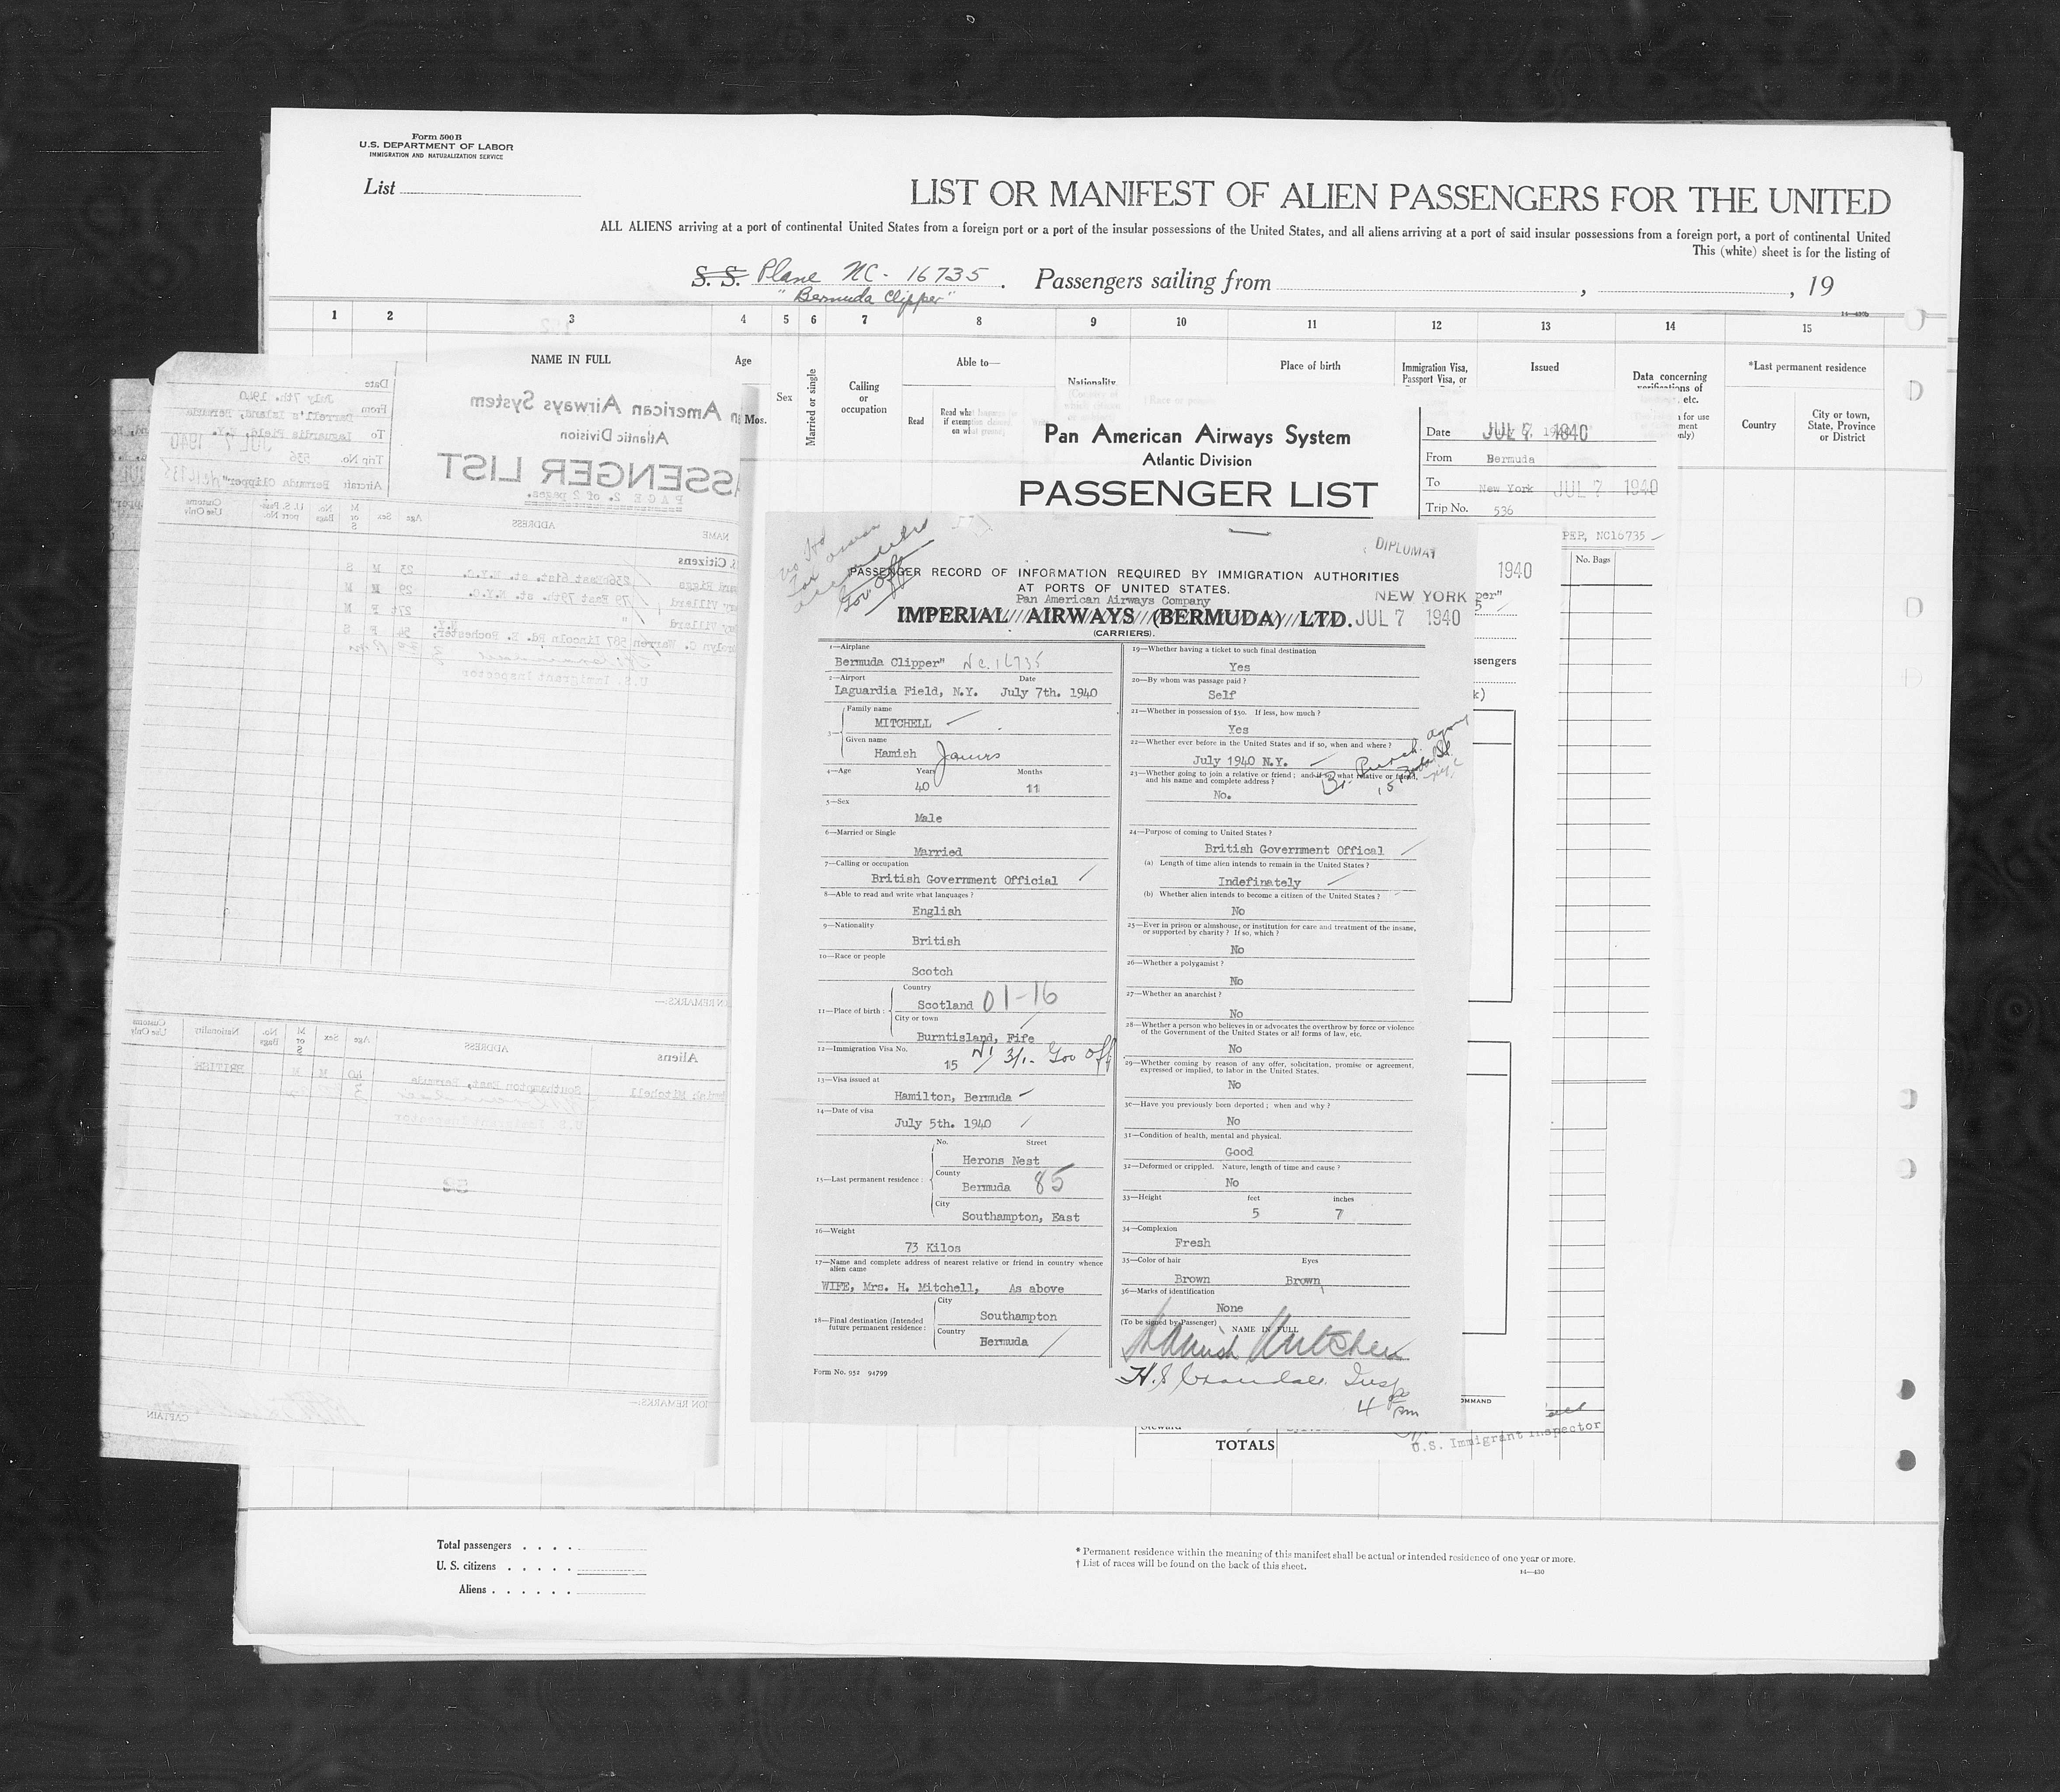 Form 500 B
U.S. DEPARTMENT OF LABOR
IMMIGRATION AND NATURALIZATION SERVICE
List
LIST OR MANIFEST OF ALIEN PASSENGERS FOR THE UNITED
ALL ALIENS arriving at a port of continental United States from a foreign port or a port of the insular possessions of the United States, and all aliens arriving at a port of said insular possessions from a foreign port, a port of continental United
This (white) sheet is for the listing of
S. S. Plane NC- 16735. Passengers sailing from , , 19
"Bermuda Clipper"
14-430b
1 2 3 4 5 6 7 8 9 10 11 12 13 14 15
NAME IN FULL
Age
Mos.
Sex
Married or single
Calling or occupation
Able to—
Read
Read what
if exemption
on what
Nationality
Place of birth
Immigration Visa,
Passport Visa, or
Issued
Data concerning
verifications of
, etc.
for use
ment
only)
*Last permanent residence
Country
City or town,
State, Province
or District
Date
July 7th. 1940
From
Darrell's Island, Bermuda
To
Laguardia Field, N.Y.
JUL 7 1940
Trip No. 536
Aircraft Bermuda Clipper"
American Airways System
Atlantic Division
SSENGER LIST
PAGE 2. of 2 pages.
NAME
ADDRESS
Age
Sex
M or S
No. Bags
U. S. Passport No.
Customs Use Only
Citizens
Riggs 236 East 61st. st. N.Y.C. 23 M S
Villard 79 East 79th. st. N.Y.C. 29 M M
Villard " 27 F M
C. Warren 587 Lincoln Rd. E. Rochester, N.Y. 54 F S
U. S. Immigrant Inspector
ON REMARKS:—
Aliens
ADDRESS
Age
Sex
M or S
No. Bags
Nationality
Customs Use Only
Mitchell Southampton East, Bermuda 40 M M BRITISH
ON REMARKS:—
CAPTAIN
Pan American Airways System
Atlantic Division
PASSENGER LIST
Date JUL 7 1940
From Bermuda
To New York JUL 7 1940
Trip No. 536
PER, NC16735
No. Bags
1940
per"
5
ssengers
k)
DIPLOMAT
Gov Off
PASSENGER RECORD OF INFORMATION REQUIRED BY IMMIGRATION AUTHORITIES
AT PORTS OF UNITED STATES.
Pan American Airways Company
IMPERIAL AIRWAYS (BERMUDA) LTD.
(CARRIERS).
NEW YORK
JUL 7 1940
1—Airplane
Bermuda Clipper" NC.16735
2—Airport Date
Laguardia Field, N.Y. July 7th. 1940
3—
Family name
MITCHELL
Given name
Hamish James
4—Age Years Months
40 11
5—Sex
Male
6—Married or Single
Married
7—Calling or occupation
British Government Official
8—Able to read and write what languages ?
English
9—Nationality
British
10—Race or people
Scotch
11—Place of birth :
Country
Scotland 01-16
City or town
Burntisland, Fife
12—Immigration Visa No.
15 3/1- Gov Off
13—Visa issued at
Hamilton, Bermuda
14—Date of visa
July 5th. 1940
15—Last permanent residence :
No. Street
Herons Nest
County
Bermuda 85
City
Southampton, East
16—Weight
73 Kilos
17—Name and complete address of nearest relative or friend in country whence
alien came
WIFE, Mrs. H. Mitchell, As above
18—Final destination (Intended
future permanent residence :
City
Southampton
Country
Bermuda
Form No. 952 94799
19—Whether having a ticket to such final destination
Yes
20—By whom was passage paid ?
Self
21—Whether in possession of $50. If less, how much ?
Yes
22—Whether ever before in the United States and if so, when and where ?
July 1940 N.Y.
23—Whether going to join a relative or friend ; and if so, what relative or friend,
and his name and complete address ?
No.
24—Purpose of coming to United States ?
British Government Offical
(a) Length of time alien intends to remain in the United States ?
Indefinately
(b) Whether alien intends to become a citizen of the United States ?
No
25—Ever in prison or almshouse, or institution for care and treatment of the insane,
or supported by charity ? If so, which ?
No
26—Whether a polygamist ?
No
27—Whether an anarchist ?
No
28—Whether a person who believes in or advocates the overthrow by force or violence
of the Government of the United States or all forms of law, etc.
No
29—Whether coming by reason of any offer, solicitation, promise or agreement,
expressed or implied, to labor in the United States.
No
30—Have you previously been deported ; when and why ?
No
31—Condition of health, mental and physical.
Good
32—Deformed or crippled. Nature, length of time and cause ?
No
33—Height feet inches
5 7
34—Complexion
Fresh
35—Color of hair Eyes
Brown Brown
36—Marks of identification
None
(To be signed by Passenger) NAME IN FULL
Hamish Mitchell
4 pm
OMMAND
Steward
TOTALS
U.S. Immigrant Inspector
Total passengers . . . .
U. S. citizens . . . . .
Aliens . . . . . .
* Permanent residence within the meaning of this manifest shall be actual or intended residence of one year or more.
† List of races will be found on the back of this sheet.
14—430